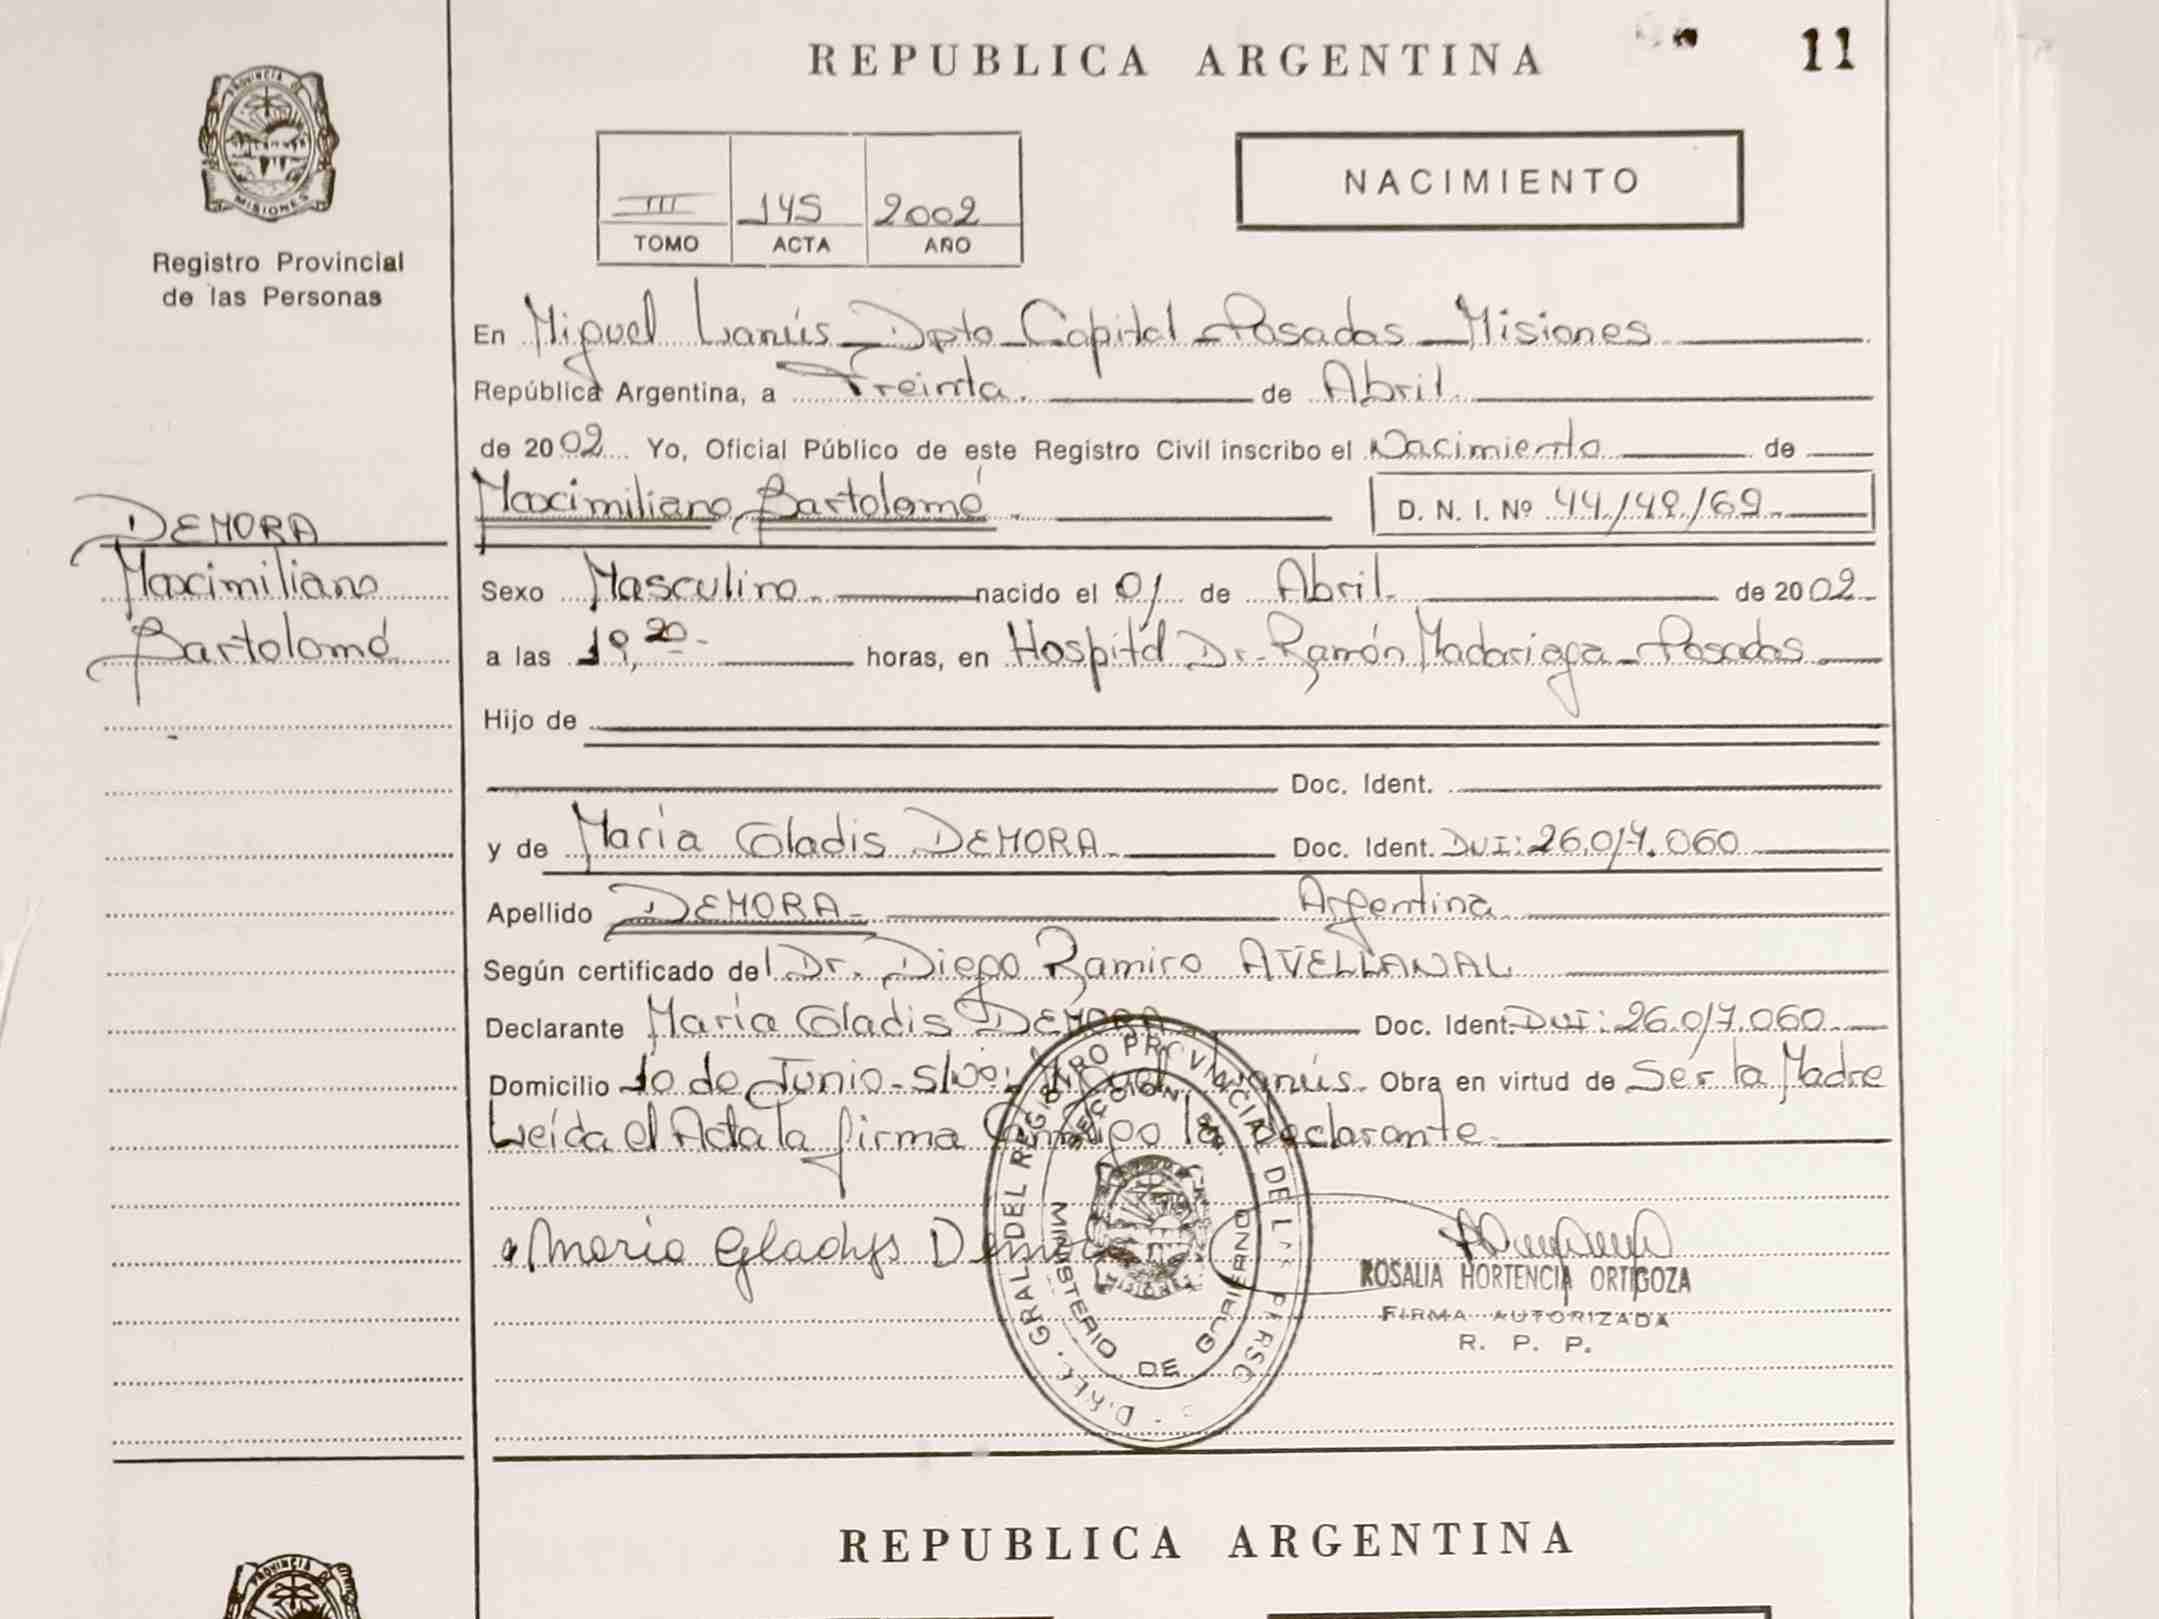 REPUBLICA ARGENTINA
11
PROVINCIA DE
MISIONES
Registro Provincial
de las Personas
III 145 2002
TOMO ACTA AÑO
NACIMIENTO
En Miguel Lanús - Dpto - Capital - Posadas - Misiones
República Argentina, a Treinta. de Abril.
de 2002 Yo, Oficial Público de este Registro Civil inscribo el Nacimiento de
Maximiliano Bartolomé
D. N. I. Nº
DEMORA
Maximiliano
Bartolomé
Sexo Masculino nacido el 01 de Abril. de 2002
a las 19,20 horas, en Hospital Dr. Ramón Madariaga - Posadas
Hijo de
Doc. Ident.
y de María Gladis DEMORA Doc. Ident. DNI: 26.017.060
Apellido DEMORA Argentina
Según certificado del Dr. Diego Ramiro AVELLANAL
Declarante María Gladis DEMORA Doc. Ident. DNI: 26.017.060
Domicilio 10 de Junio - s/Nº; Miguel Lanús. Obra en virtud de Ser la Madre
Leída el Acta la firma Conmigo la Declarante
Maria Gladys
DIREC. GRAL. DEL REGISTRO PROVINCIAL DE LAS PERSONAS
SECCION
MINISTERIO DE GOBIERNO
MISIONES
ROSALIA HORTENCIA ORTIGOZA
FIRMA AUTORIZADA
R. P. P.
REPUBLICA ARGENTINA
PROVINCIA DE